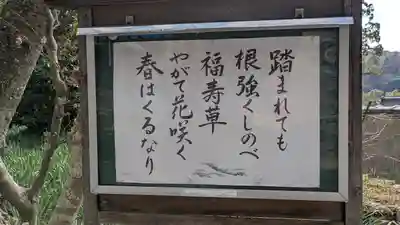 踏まれても
根強くしのべ
福寿草
やがて花咲く
春はくるなり